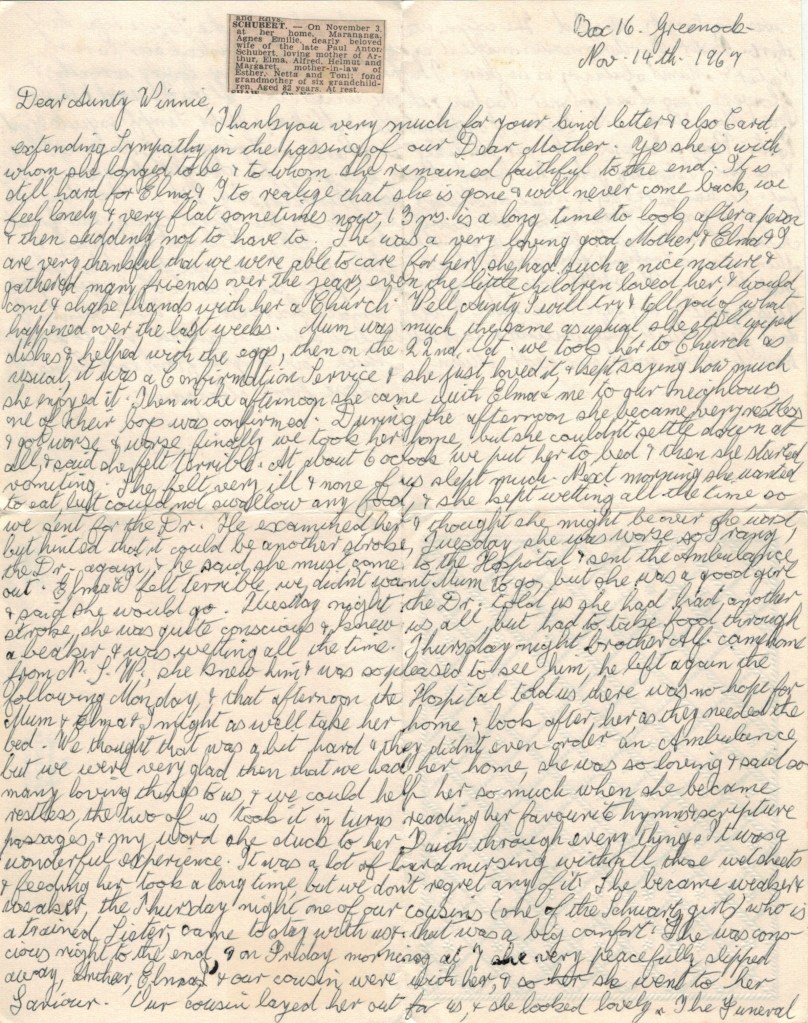 and Rhys.
SCHUBERT. — On November 3,
at her home, Marananga,
Agnes Emilie, dearly beloved
wife of the late Paul Anton
Schubert, loving mother of Ar-
thur, Elma, Alfred, Helmut and
Margaret, mother-in-law of
Esther, Netta and Toni; fond
grandmother of six grandchild-
ren. Aged 82 years. At rest.
Box 16. Greenock
Nov. 14th. 1967
Dear Aunty Winnie,
Thank you very much for your kind letter & also Card
extending Sympathy in the passing of our Dear Mother. Yes she is with
whom she longed to be, & to whom she remained faithful to the end. It is
still hard for Elma & I to realize that she is gone & will never come back, we
feel lonely & very flat sometimes now, 13 yrs. is a long time to look after a person
& then suddenly not to have to. She was a very loving good Mother, & Elma & I
are very thankful that we were able to care for her, she had such a nice nature &
gathered many friends over the years, even the little children loved her, & would
come & shake hands with her a Church. Well Aunty I will try & tell you of what
happened over the last weeks. Mum was much the same as usual she still wiped
dishes, & helped with the eggs, then on the 22nd. Oct. we took her to Church as
usual, it was a Confirmation Service & she just loved it, & kept saying how much
she enjoyed it. Then in the afternoon she came with Elma & me to our neighbours
one of their boys was confirmed. During the afternoon she became very restless
& got worse & worse, finally we took her home, but she couldn't settle down at
all, & said she felt terrible. At about 6 o'clock we put her to bed & then she started
vomiting. She felt very ill & none of us slept much. Next morning she wanted
to eat, but could not swallow any food, & she kept wetting all the time, so
we sent for the Dr. He examined her & thought she might be over the worst,
but hinted that it could be another stroke, Tuesday she was worse so I rang
the Dr. again, & he said she must come to the Hospital & sent the Ambulance
out. Elma & I felt terrible, we didn't want Mum to go, but she was a good girl
& said she would go. Tuesday night the Dr. told us she had had another
stroke, she was quite conscious & knew us all, but had to take food through
a beaker & was wetting all the time. Thursday night brother Alf. came home
from N.S.W., she knew him & was so pleased to see him, he left again the
following Monday, & that afternoon the Hospital told us there was no hope for
Mum & Elma & I might as well take her home & look after her as they needed the
bed. We thought that was a bit hard & they didn't even order an Ambulance
but we were very glad then that we had her home, she was so loving & said so
many loving things to us, & we could help her so much when she became
restless, the two of us took it in turns reading her favourite hymns & scripture
passages & my word she stuck to her Faith through every thing. It was a
wonderful experience. It was a lot of hard nursing with all those wet sheets
& feeding her took a long time, but we don't regret any of it. She became weaker &
weaker, the Thursday night one of our cousins (one of the Schwartz girls) who is
a trained Sister, came to stay with us & that was a big comfort. She was cons-
cious right to the end, & on Friday morning at 7 she very peacefully slipped
away, Elma, & our cousin were with her, & so she went to her
Saviour. Our cousin layed her out for us, & she looked lovely. The Funeral